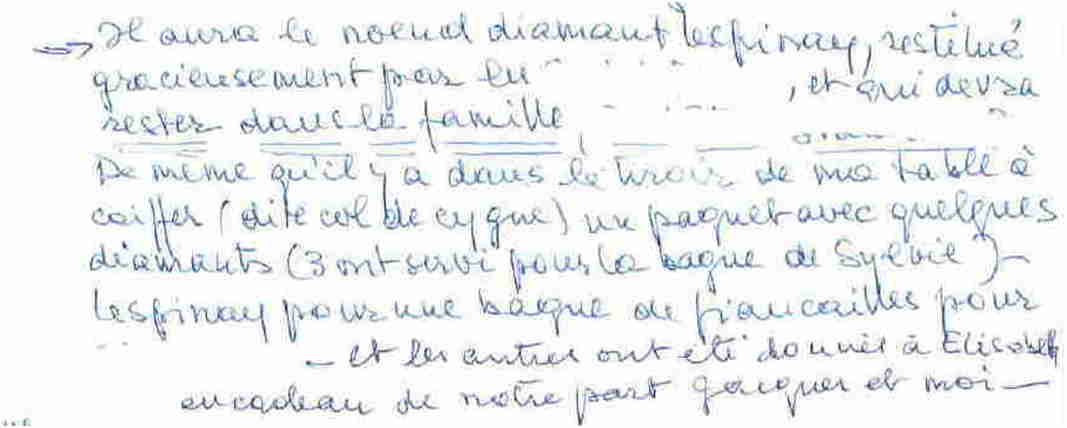 ⇒ Il aura le noeud diamant lespinay, restitué
gracieusement par lui , et qui devra
rester dans la famille,
De même qu'il y a dans le tiroir de ma table à
coiffer (dite col de cygne) un paquet avec quelques
diamants (3 ont servi pour la bague de Sylvie)-
lespinay pour une bague de fiancailles pour
- et les autres ont été donnés à Elisabeth
en cadeau de notre part Jacques et moi -